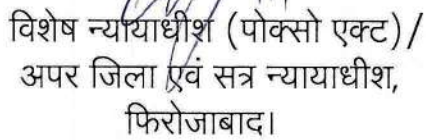 विशेष न्यायाधीश (पोक्सो एक्ट) /
अपर जिला एवं सत्र न्यायाधीश,
फिरोजाबाद।